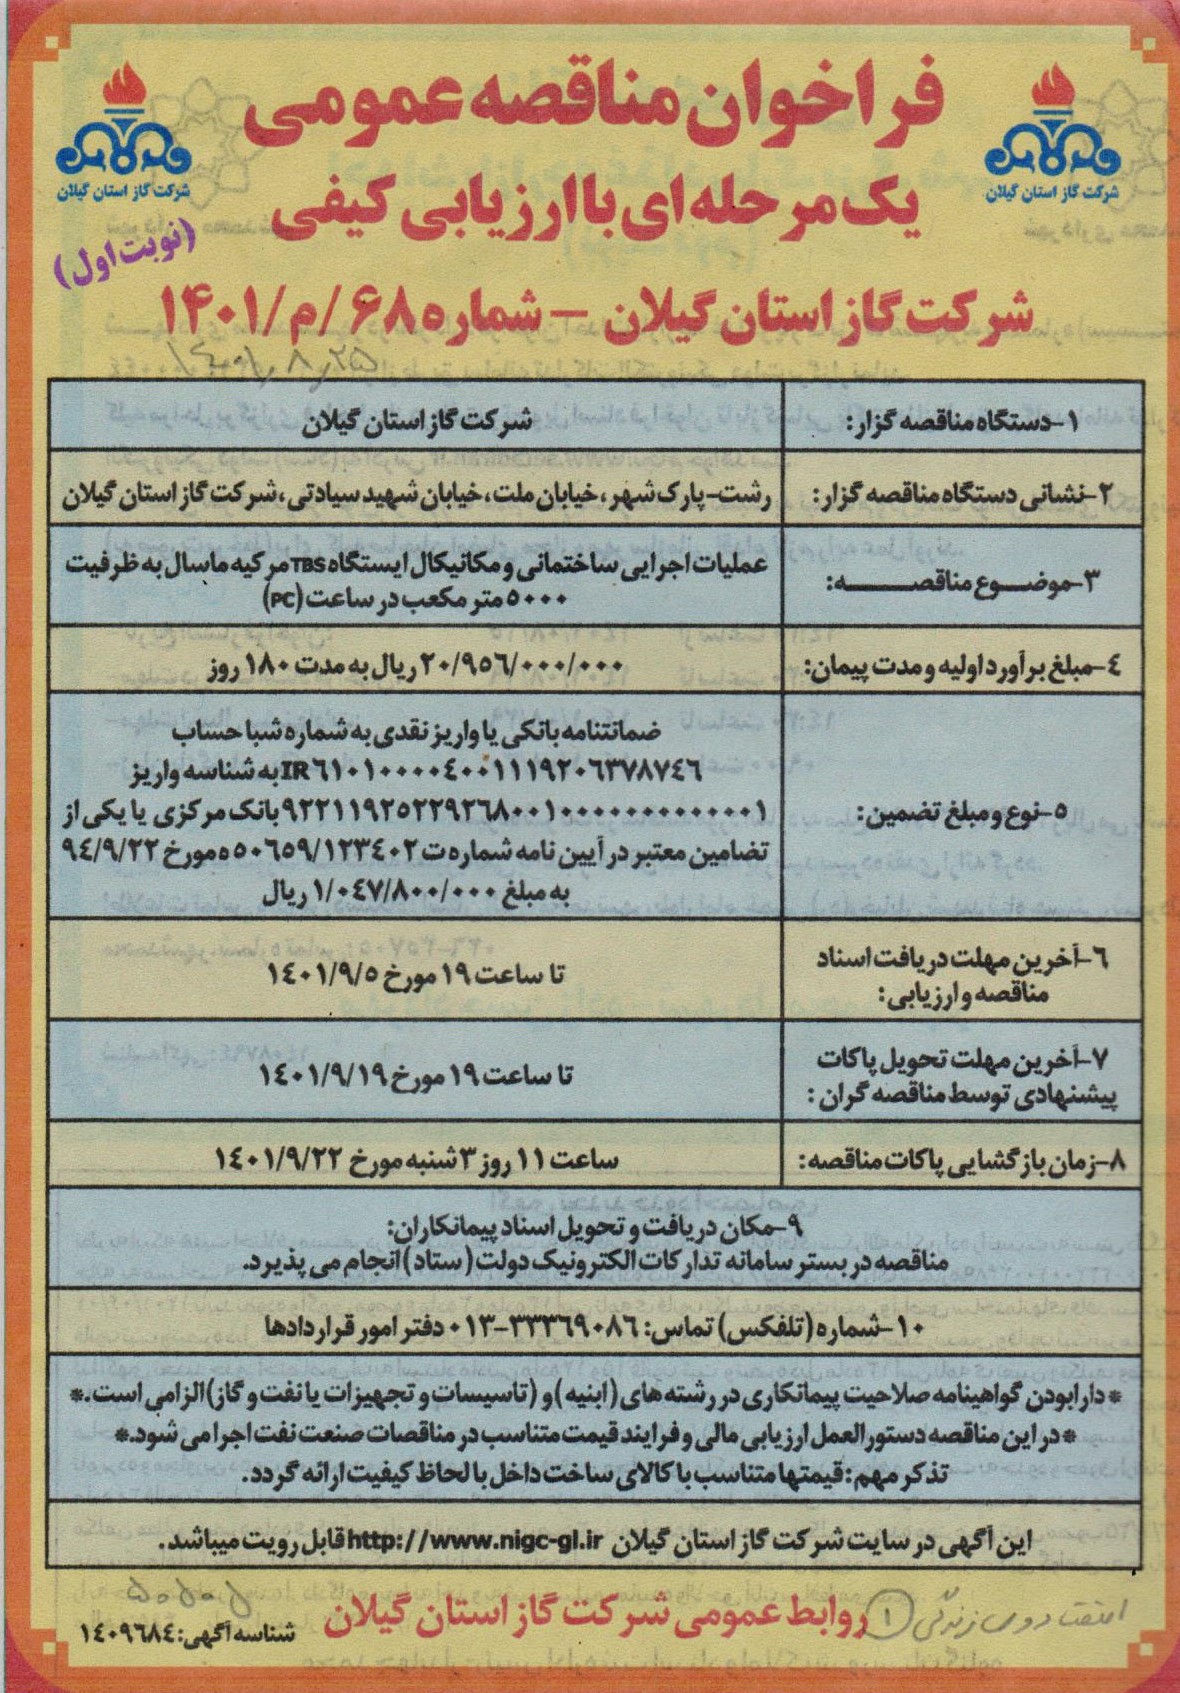 فراخوان مناقصه عمومی
یک مرحله ای با ارزیابی کیفی
شرکت گاز استان گیلان
شرکت گاز استان گیلان
(نوبت اول)
شرکت گاز استان گیلان – شماره ۶۸/م/۱۴۰۱
۱-دستگاه مناقصه گزار:
شرکت گاز استان گیلان
۲-نشانی دستگاه مناقصه گزار:
رشت-پارک شهر،خیابان ملت،خیابان شهید سیادتی،شرکت گاز استان گیلان
۳-موضوع مناقصه:
عملیات اجرایی ساختمانی و مکانیکال ایستگاه TBS مرکیه ماسال به ظرفیت
۵۰۰۰ متر مکعب در ساعت (PC)
۴-مبلغ برآورد اولیه و مدت پیمان:
۲۰/۹۵۶/۰۰۰/۰۰۰ ریال به مدت ۱۸۰ روز
۵-نوع و مبلغ تضمین:
ضمانتنامه بانکی یا واریز نقدی به شماره شبا حساب
IR۶۱۰۱۰۰۰۰۴۰۰۱۱۱۹۲۰۶۳۷۸۷۴۶ به شناسه واریز
۹۲۲۱۱۹۲۵۲۲۹۲۶۸۰۰۱۰۰۰۰۰۰۰۰۰۰۰۰۰۱ بانک مرکزی یا یکی از
تضامین معتبر در آیین نامه شماره ت ۵۰۶۵۹/۱۲۳۴۰۲ه مورخ ۹۴/۹/۲۲
به مبلغ ۱/۰۴۷/۸۰۰/۰۰۰ ریال
۶-آخرین مهلت دریافت اسناد
مناقصه و ارزیابی:
تا ساعت ۱۹ مورخ ۱۴۰۱/۹/۵
۷-آخرین مهلت تحویل پاکات
پیشنهادی توسط مناقصه گران :
تا ساعت ۱۹ مورخ ۱۴۰۱/۹/۱۹
۸-زمان بازگشایی پاکات مناقصه:
ساعت ۱۱ روز ۳ شنبه مورخ ۱۴۰۱/۹/۲۲
۹-مکان دریافت و تحویل اسناد پیمانکاران:
مناقصه در بستر سامانه تدارکات الکترونیک دولت (ستاد) انجام می پذیرد.
۱۰-شماره (تلفکس) تماس: ۳۳۳۶۹۰۸۶-۰۱۳ دفتر امور قراردادها
*دارا بودن گواهینامه صلاحیت پیمانکاری در رشته های (ابنیه) و (تاسیسات و تجهیزات یا نفت و گاز) الزامی است.*
*در این مناقصه دستورالعمل ارزیابی مالی و فرایند قیمت متناسب در مناقصات صنعت نفت اجرا می شود.*
تذکر مهم: قیمتها متناسب با کالای ساخت داخل با لحاظ کیفیت ارائه گردد.
این آگهی در سایت شرکت گاز استان گیلان http://www.nigc-gl.ir قابل رویت میباشد.
روابط عمومی شرکت گاز استان گیلان
۱
شناسه آگهی: ۱۴۰۹۶۸۴